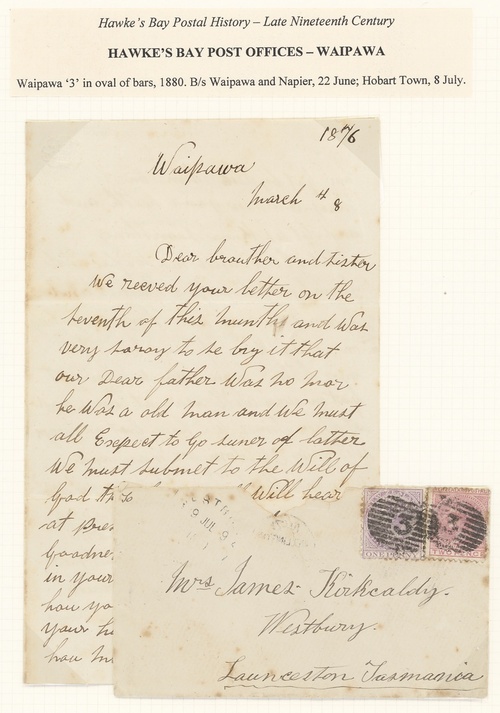 Hawke's Bay Postal History – Late Nineteenth Century
HAWKE'S BAY POST OFFICES – WAIPAWA
Waipawa '3' in oval of bars, 1880. B/s Waipawa and Napier, 22 June; Hobart Town, 8 July.
1876
Waipawa
March 4 8
Dear brouther and sister
We reeved your letter on the
seventh of this munth and was
very soray to se by it that
our Dear father Was no mor
he Was a old man and We must
allExpect to Go suner of lather
We must submet to the Will of
God
Will hear
at
Goodne
in your
hou yo
your h
hou
9 JUL
3
3
ONE PENNY
TWO PENCE
Mrs James Kirkcaldy.
Westbury.
Launceston Tasmania